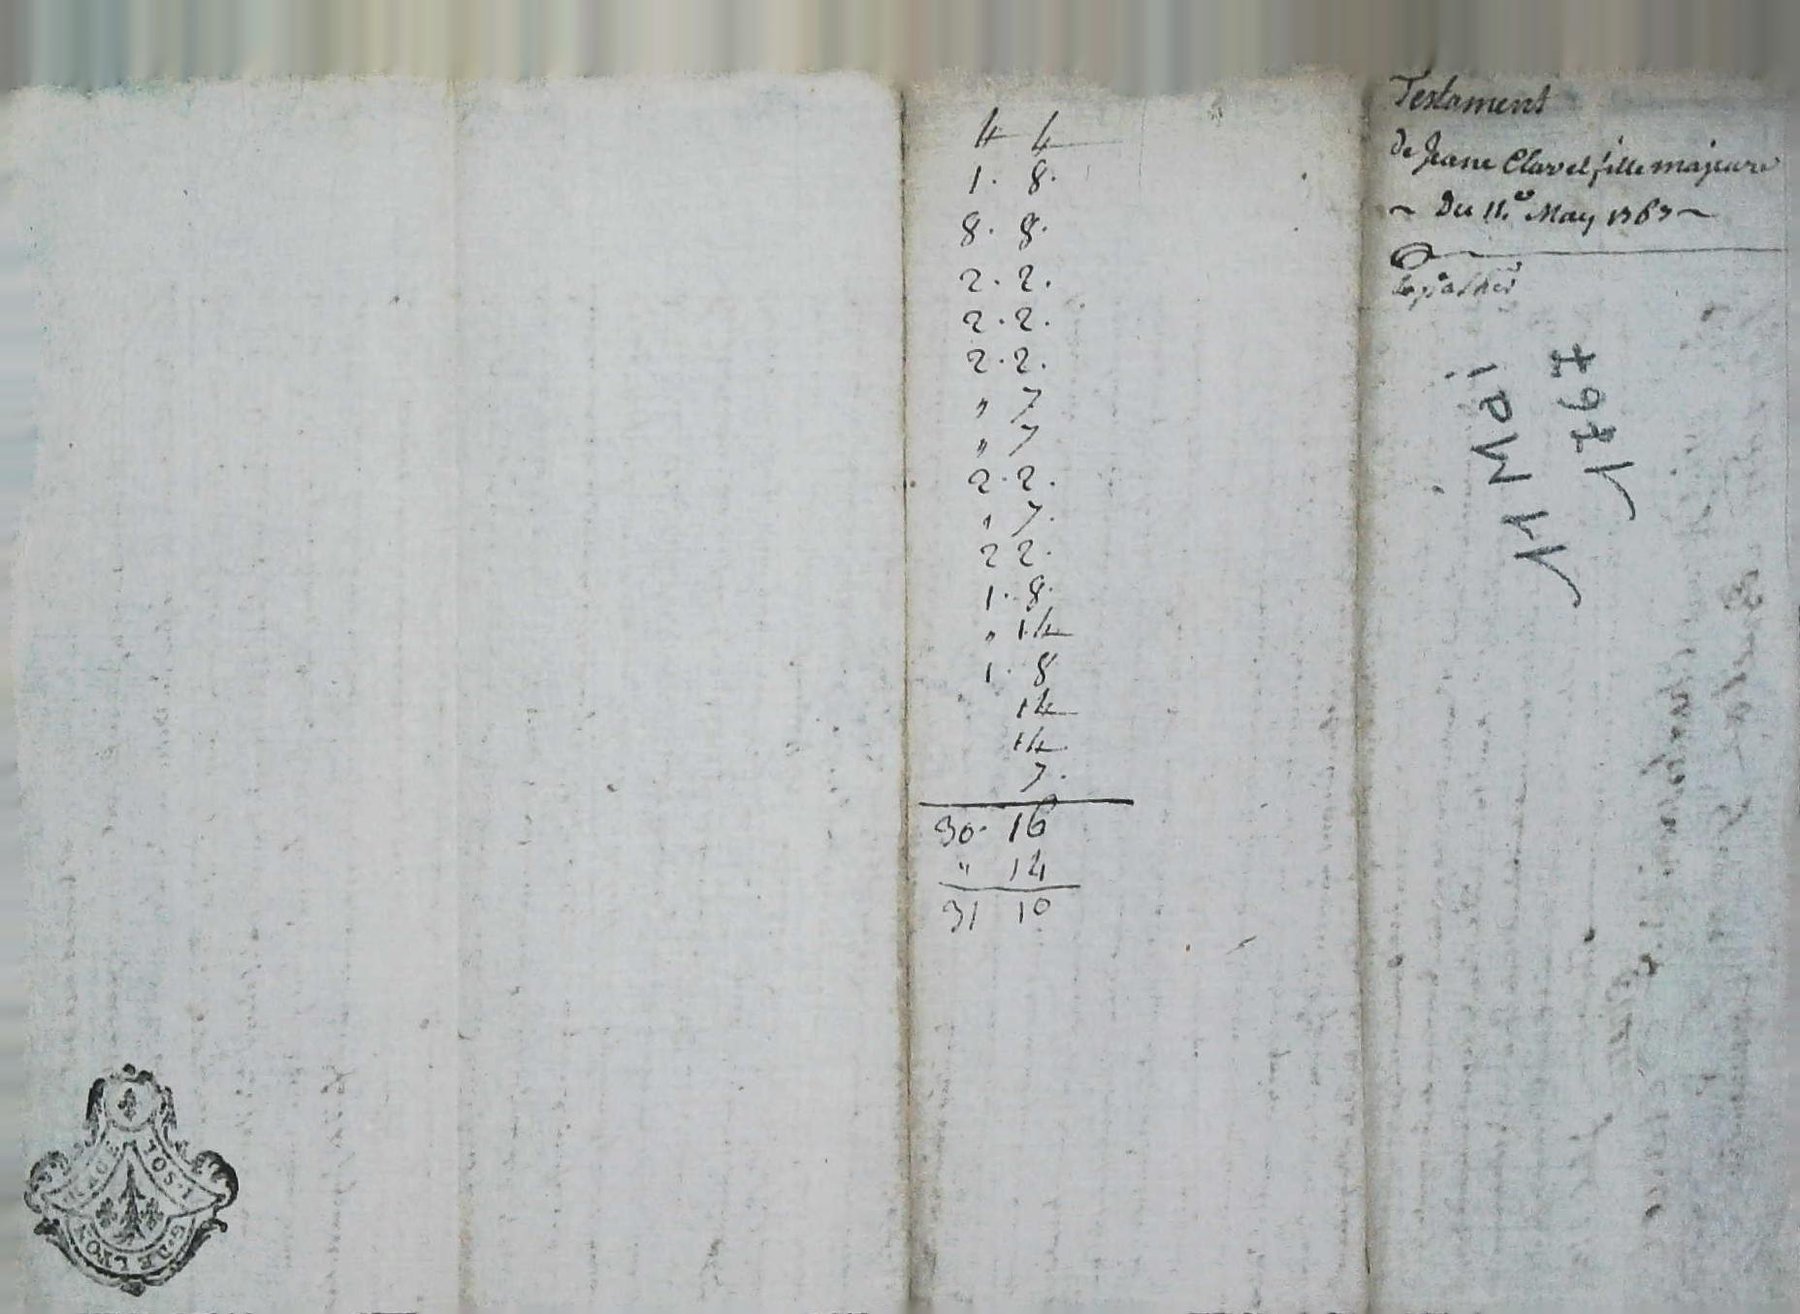 4 4
1. 8.
8. 8.
2. 2.
2. 2.
2. 2.
" 7
" 7
2. 2.
" 7.
2 2.
1. 8.
" 14
1. 8
14
14
7.
30. 16
" 14
31 10
Testament
De Jeane Clavel fille majeure
~ Du 11.e May 1767 ~
1767
11 Mai
2 SOLS
G. DE LYON